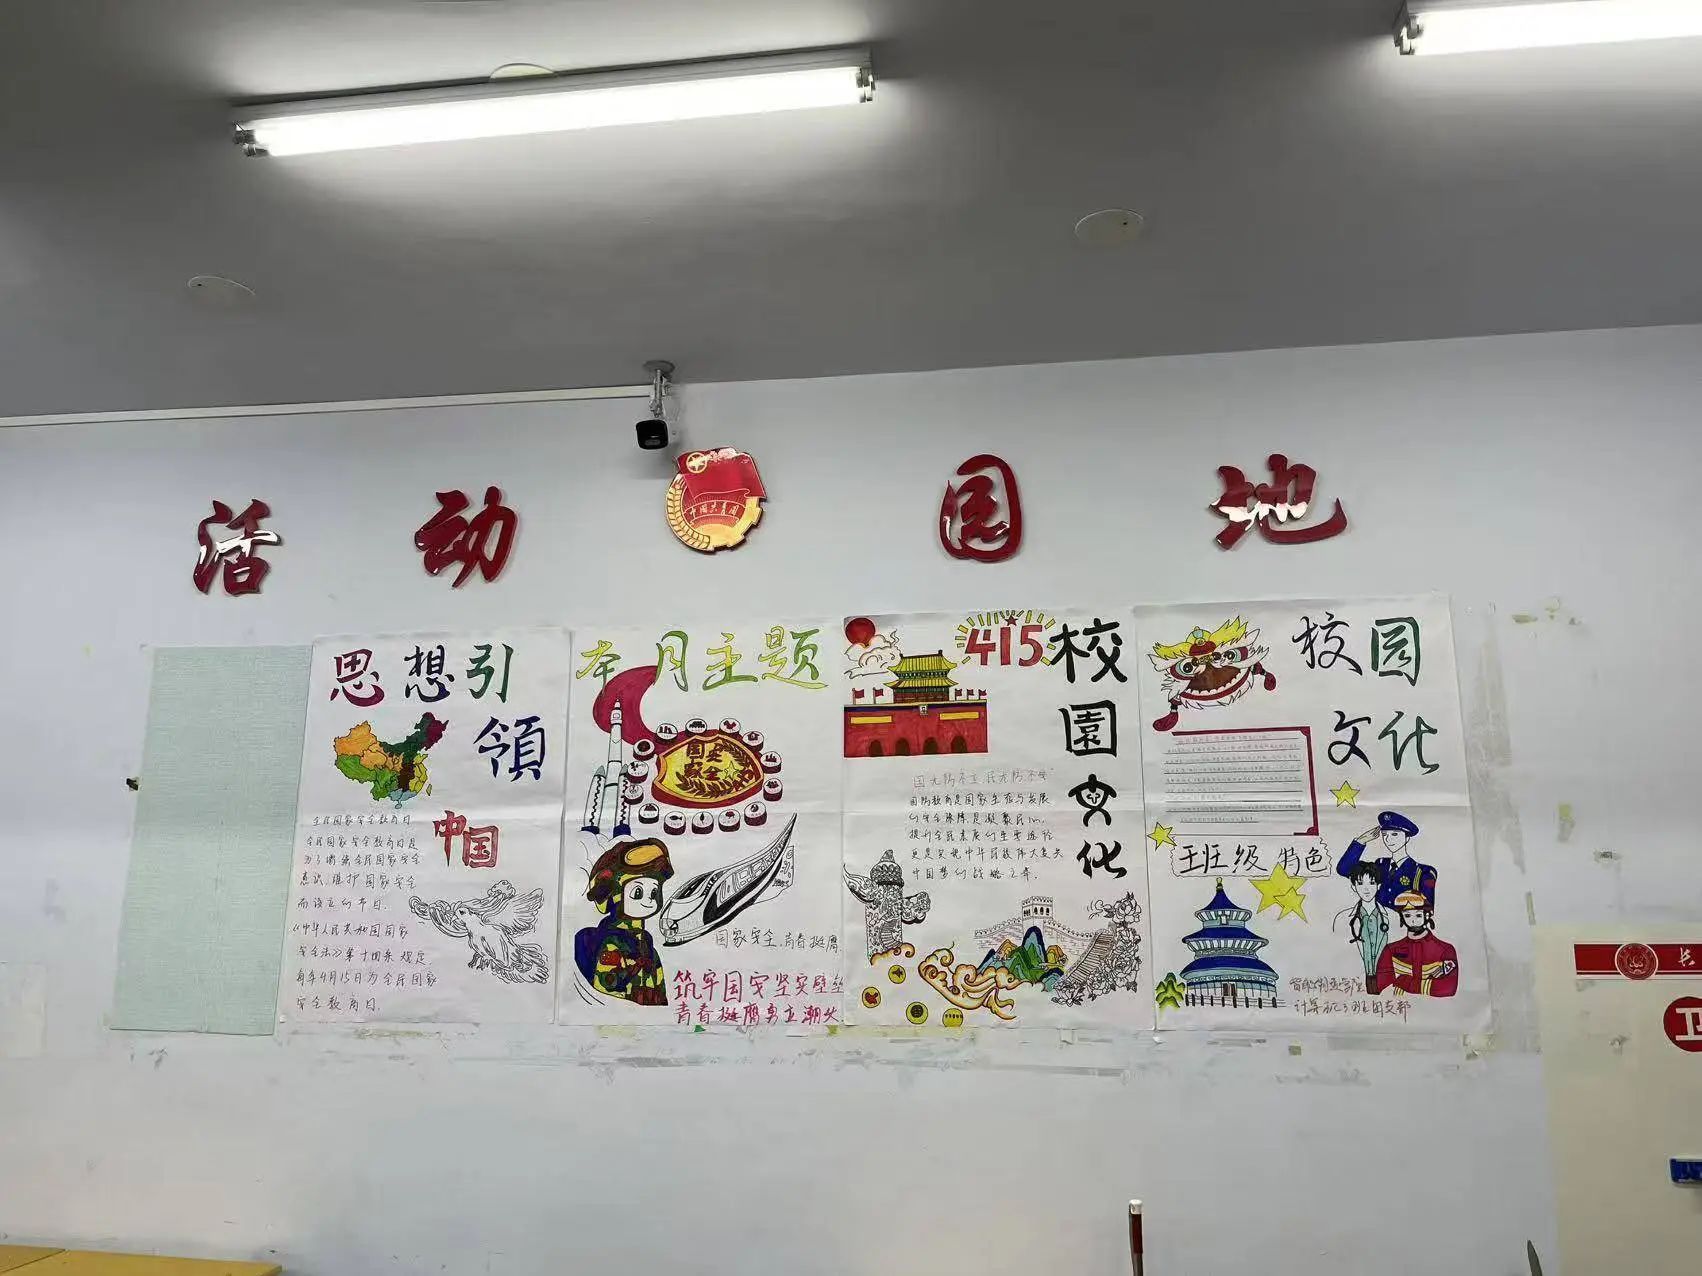 活动园地
中国共青团
思想引
領
中国
全民国家安全教育日
全民国家安全教育日是
为了增强全民国家安全
意识、维护国家安全
而设立的节日。
《中华人民共和国国家
安全法》第十四条规定
每年4月15日为全民国家
安全教育日.
本月主题
国家安全
国家安全,青春挺膺
筑牢国安坚实壁垒
青春挺膺勇立潮头
415
校園文化
国无防不立 民无防不安
国防教育是国家生存与发展
的安全保障,是凝聚民心,
提升全民素质的重要途径
更是实现中华民族伟大复兴
中国梦的战略之举.
校园
文化
班级特色
计算机3班团支部
长
卫